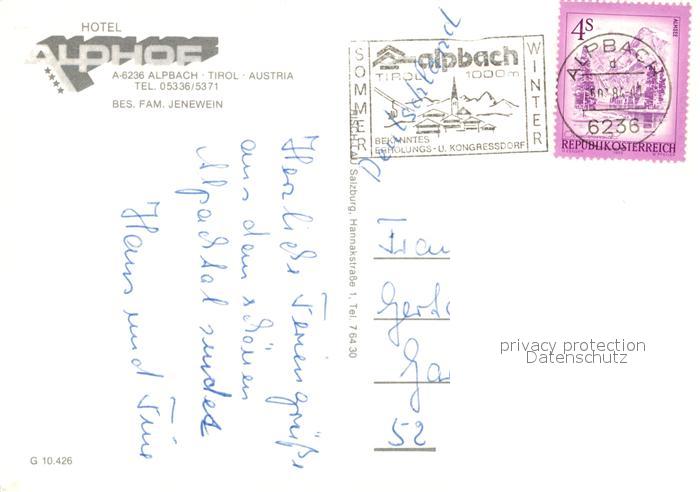 HOTEL
ALPHOF
A-6236 ALPBACH · TIROL · AUSTRIA
TEL. 05336/5371
BES. FAM. JENEWEIN
Herzliche Feriengrüße
aus dem schönen
Alpachtal sendet
Hans und
G 10.426
Hannakstraße 1, Tel. 7 64 30
SOMMER
alpbach
TIROL 1000m
WINTER
BEKANNTES
ERHOLUNGS- U. KONGRESSDORF
Deutschland
4S
ALMSEE
REPUBLIK ÖSTERREICH
ALPBACH
d
6236
Frau
52
privacy protection
Datenschutz